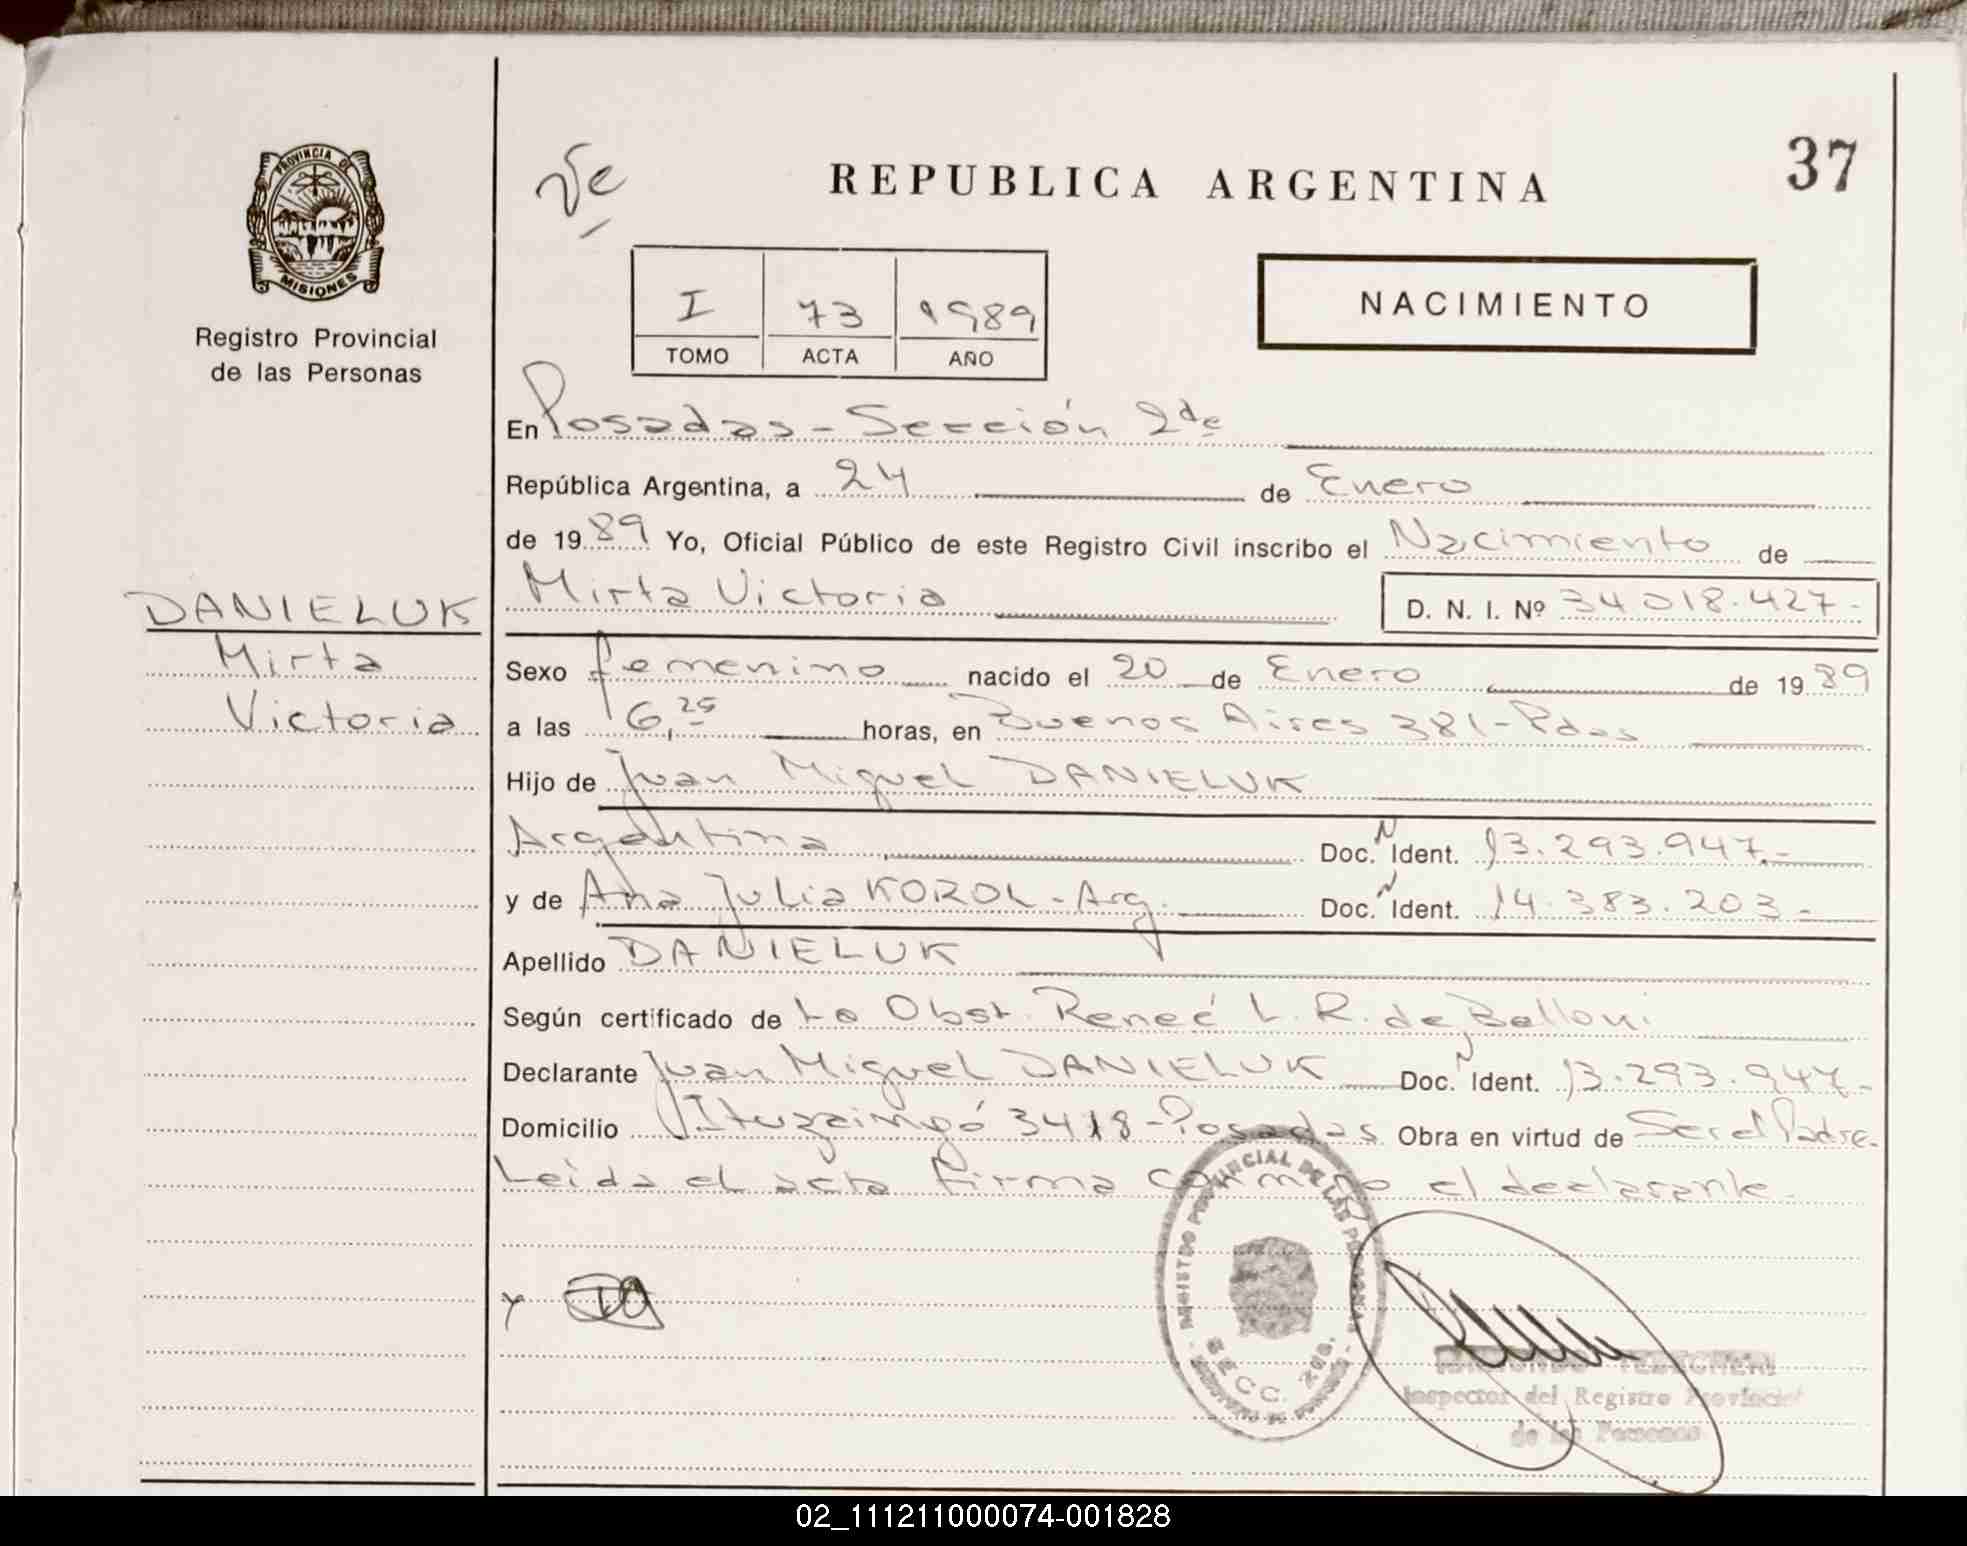 37
Ve
REPUBLICA ARGENTINA
PROVINCIA DE
MISIONES
Registro Provincial
de las Personas
NACIMIENTO
I 73 1989
TOMO ACTA AÑO
En Posadas - Sección 2da
República Argentina, a 24 de Enero
de 1989 Yo, Oficial Público de este Registro Civil inscribo el Nacimiento de
DANIELUK
Mirta
Victoria
Mirta Victoria D. N. I. Nº 34018.427-
Sexo femenino nacido el 20 de Enero de 1989
a las 6,25 horas, en Buenos Aires 381-Pdas
Hijo de Juan Miguel DANIELUK
Argentina Doc. N Ident. 13.293.947.-
y de Ana Julia KOROL - Arg. Doc. N Ident. 14.383.203-
Apellido DANIELUK
Según certificado de La Obst. Reneé L. R. de Belloni
Declarante Juan Miguel DANIELUK Doc. N Ident. 13.293.947-
Domicilio Ituzaingó 3418-Posadas Obra en virtud de Ser el Padre.
Leida el acta firma conmigo el declarante.
SECC. 2da.
Inspector del Registro Provincial
de las Personas
02_111211000074-001828